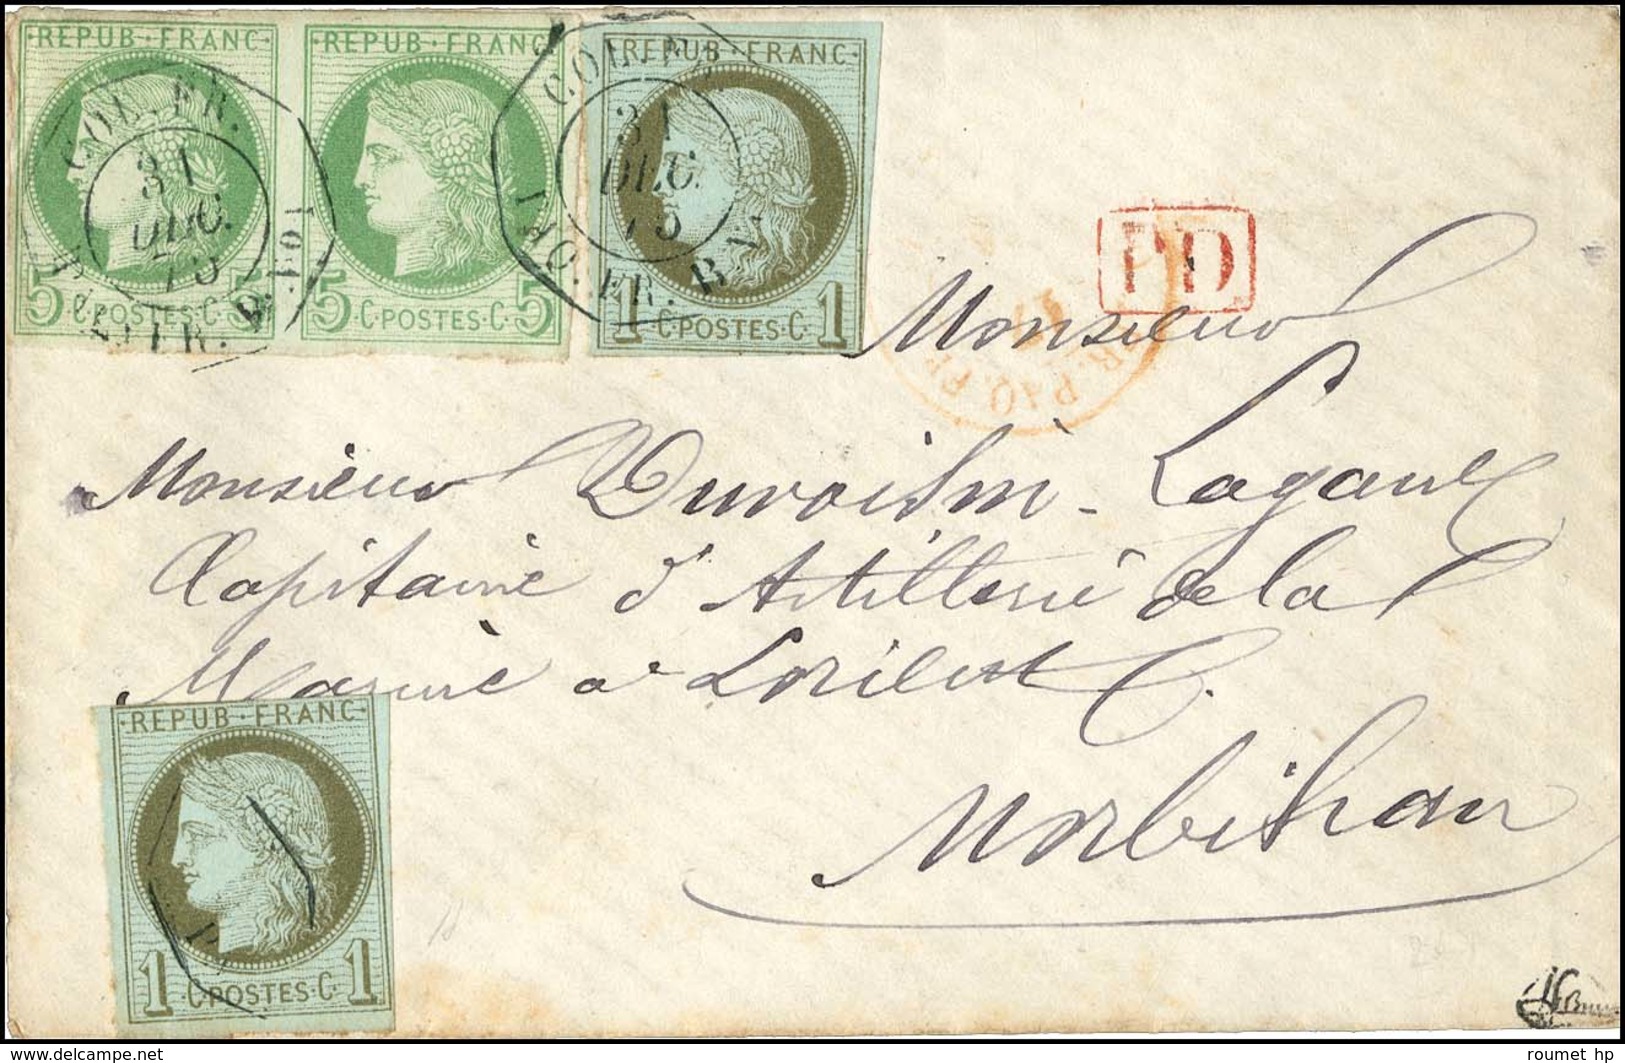 REPUB·FRANC
REPUB·FRANC
REPUB·FRANC
COL. FR.
31
DEC.
75
5 C·POSTES·C 5
5 C·POSTES·C 5
31
DEC.
75
1 C·POSTES·C· 1
PD
Monsieur
Monsieur Duvoisin - Lagaul
Capitaine d'Artillerie de la
Marine a Lorient
Morbihan
REPUB·FRANC
1 ·C·POSTES·C· 1
roumet hp